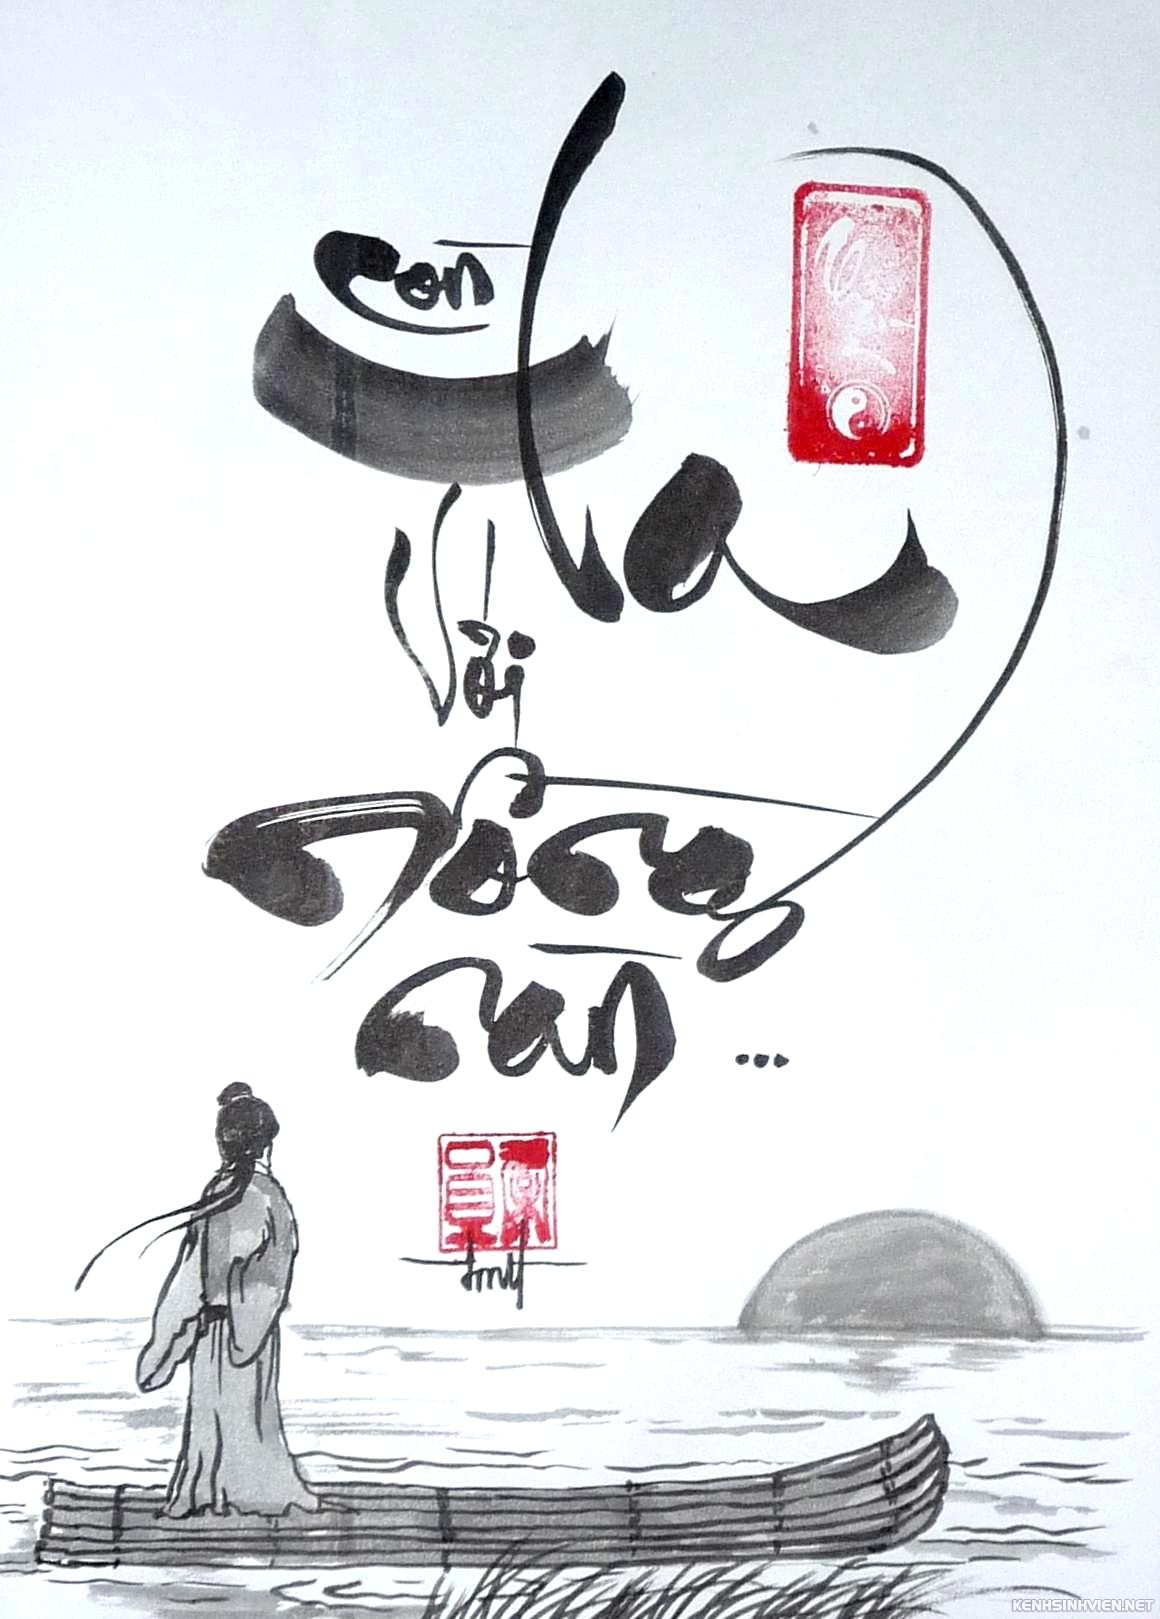 Còn
Ta
Với
Nồng
Nàn ...
KENHSINHVIEN.NET